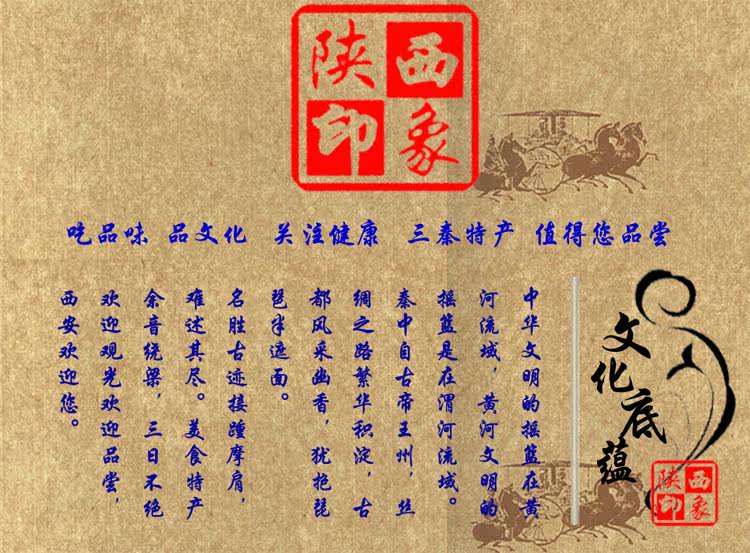 陕西
印象
吃品味 品文化 关注健康 三秦特产 值得您品尝
文化底蕴
陕西
印象
中华文明的摇篮在黄
河流域，黄河文明的
摇篮是在渭河流域。
秦中自古帝王州，丝
绸之路繁华积淀，古
都风采幽香，犹抱琵
琶半遮面。
名胜古迹接踵摩肩，
难述其尽。美食特产
余音绕梁，三日不绝
欢迎观光欢迎品尝，
西安欢迎您。